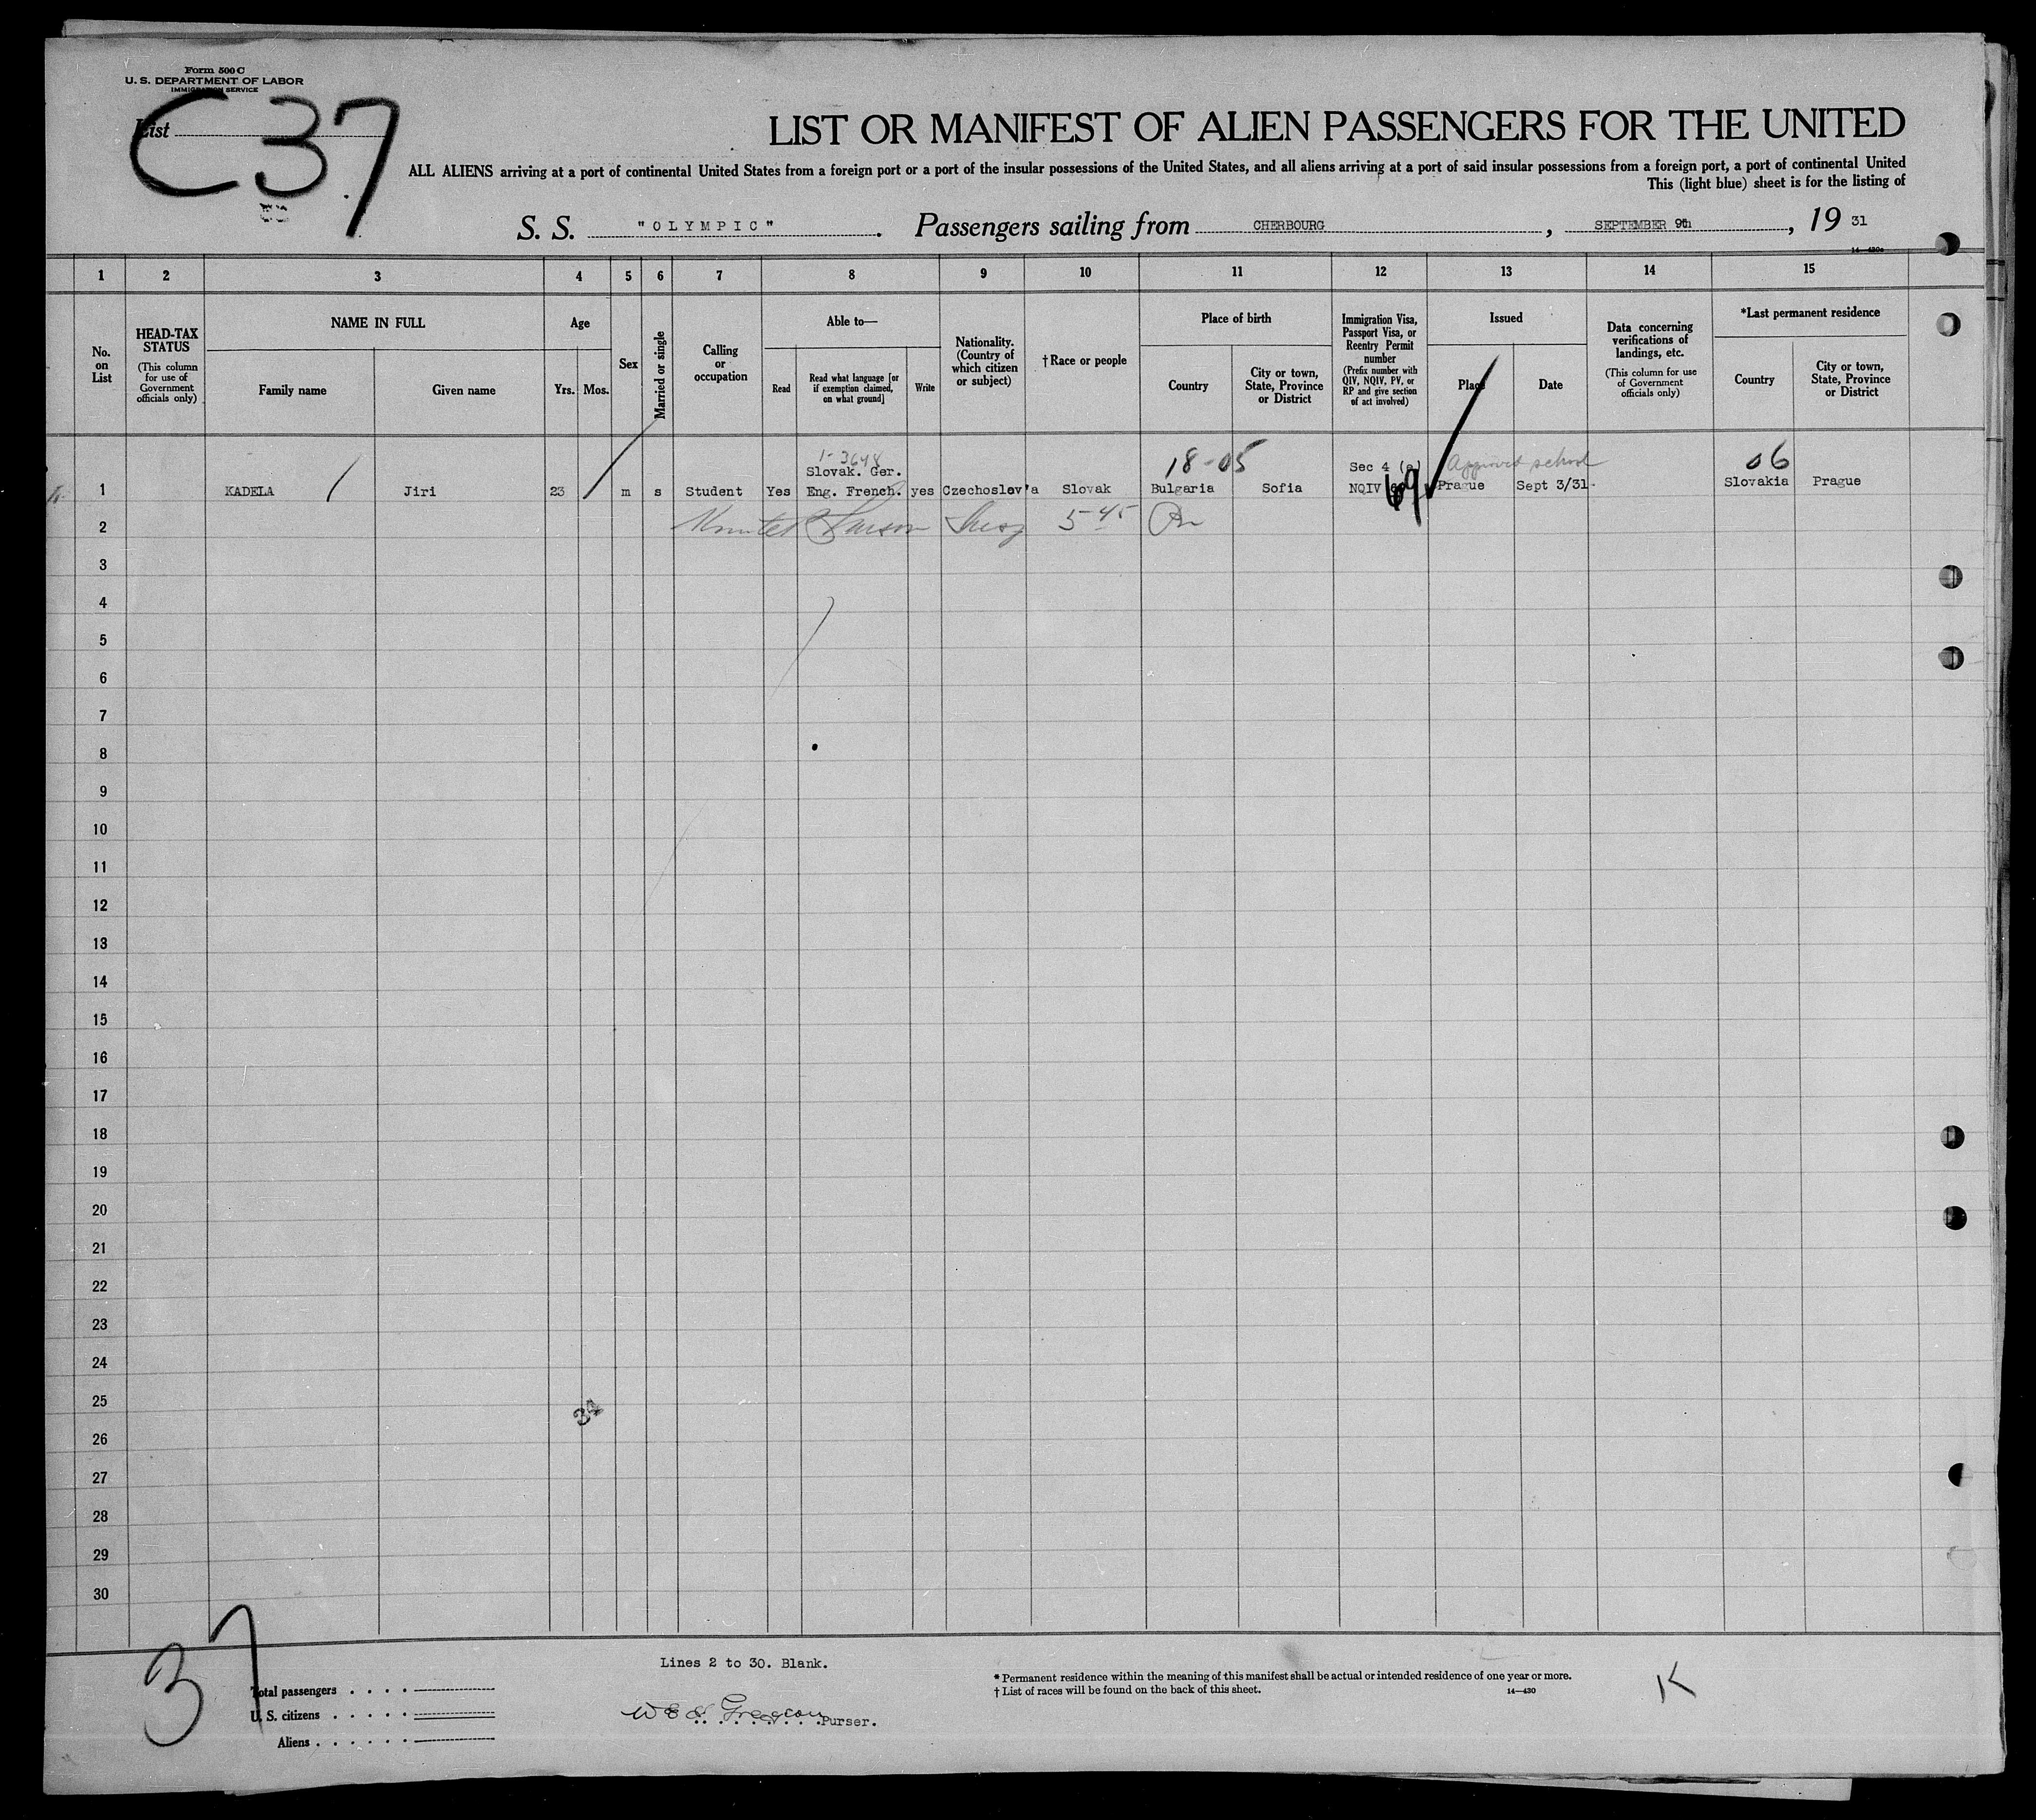 Form 500 C
U. S. DEPARTMENT OF LABOR
IMMIGRATION SERVICE
List
C37
LIST OR MANIFEST OF ALIEN PASSENGERS FOR THE UNITED
ALL ALIENS arriving at a port of continental United States from a foreign port or a port of the insular possessions of the United States, and all aliens arriving at a port of said insular possessions from a foreign port, a port of continental United
This (light blue) sheet is for the listing of
S. S. "OLYMPIC". Passengers sailing from CHERBOURG, SEPTEMBER 9th, 19 31
1 2 3 4 5 6 7 8 9 10 11 12 13 14 15
No. on List
HEAD-TAX STATUS
(This column for use of Government officials only)
NAME IN FULL
Family name
Given name
Age
Yrs. Mos.
Sex
Married or single
Calling or occupation
Able to—
Read
Read what language [or if exemption claimed, on what ground]
Write
Nationality. (Country of which citizen or subject)
†Race or people
Place of birth
Country
City or town, State, Province or District
Immigration Visa, Passport Visa, or Reentry Permit number
(Prefix number with QIV, NQIV, PV, or RP and give section of act involved)
Issued
Place
Date
Data concerning verifications of landings, etc.
(This column for use of Government officials only)
*Last permanent residence
Country
City or town, State, Province or District
1-3648 18-05 Approved school 06
Slovak. Ger. Sec 4 (e)
1 KADELA Jiri 23 m s Student Yes Eng. French. yes Czechoslov'a Slovak Bulgaria Sofia NQIV 69 Prague Sept 3/31- Slovakia Prague
2 5-45
3
4
5
6
7
8
9
10
11
12
13
14
15
16
17
18
19
20
21
22
23
24
25
26
27
28
29
30
37
Lines 2 to 30. Blank.
Total passengers . . . .
U. S. citizens . . . . .
Aliens . . . . . .
Purser.
* Permanent residence within the meaning of this manifest shall be actual or intended residence of one year or more.
† List of races will be found on the back of this sheet.
14—430
K